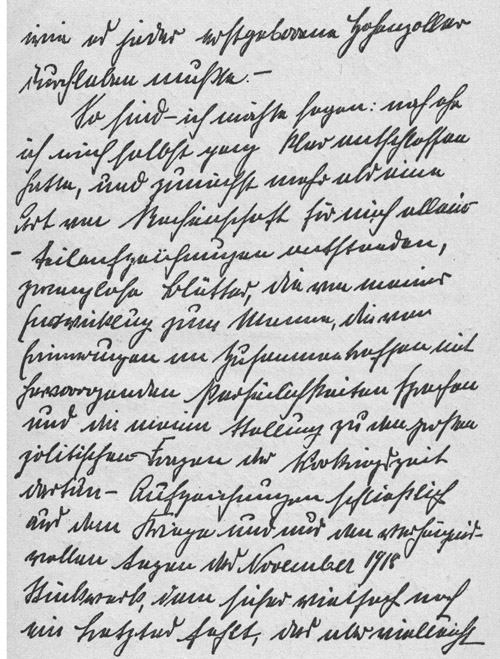 wie es jeder erstgeborene Hohenzoller
durchleben mußte. –
So sind – ich möchte sagen: noch ehe
ich mich selbst ganz klar entschlossen
hatte, und zunächst mehr als eine
Art von Rechenschaft für mich allein
– Teilaufzeichnungen entstanden,
zwanglose Blätter, die von meiner
Entwicklung zum Manne, die von
Erinnerungen an Zusammentreffen mit
hervorragenden Persönlichkeiten sprachen
und die meine Stellung zu den großen
politischen Fragen der Vorkriegszeit
dartun – Aufzeichnungen schließlich
aus dem Kriege und aus den verhängnis-
vollen Tagen des November 1918
Stückwerk, dem sicher vielfach noch
ein Letztes fehlt, das aber vielleicht